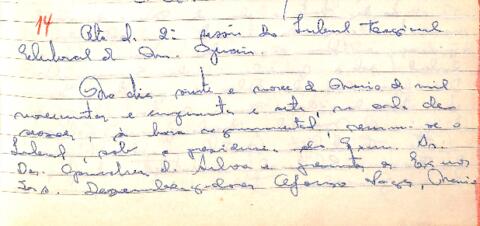 14
Ata da 2ª sessão do Tribunal Regional
Eleitoral de
Aos dias vinte e nove de Março de mil
novecentos e cinquenta e sete, na sala das
sessões, à hora regimental, reuniu-se o
Tribunal, sob a presidência do Exmo. Sr.
Des. da Silva e presentes os Exmos
Srs. Desembargadores Afonso